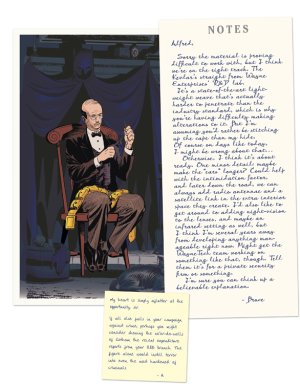 NOTES
Alfred,
Sorry the material is proving
difficult to work with, but I think
we're on the right track. The
Kevlar's straight from Wayne
Enterprises' R&D lab.
It's a state-of-the-art light-
weight weave that's actually
harder to penetrate than the
industry standard, which is why
you're having difficulty making
alterations to it. But I'm
assuming you'd rather be stitching
up the cape than my hide.
Of course on days like today,
I might be wrong about that...
Otherwise, I think it's about
ready. One minor detail: maybe
make the "ears" longer? Could help
with the intimidation factor,
and later down the road, we can
always add radio antennae and a
satellite link in the extra interior
space they create. I'd also like to
get around to adding night-vision
to the lenses, and maybe an
infrared setting as well, but
I think I'm several years away
from developing anything man-
ageable right now. Might get the
WayneTech team working on
something like that, though. Tell
them it's for a private security
firm or something.
I'm sure you can think up a
believable explanation.
- Bruce
My heart is simply aflutter at the
opportunity, sir.
If all else fails in your campaign
against crime, perhaps you might
consider showing the
of Gotham the recent expenditure
reports from your R&D branch. The
figure alone would instill terror
into even the most hardened of
criminals.
- A.